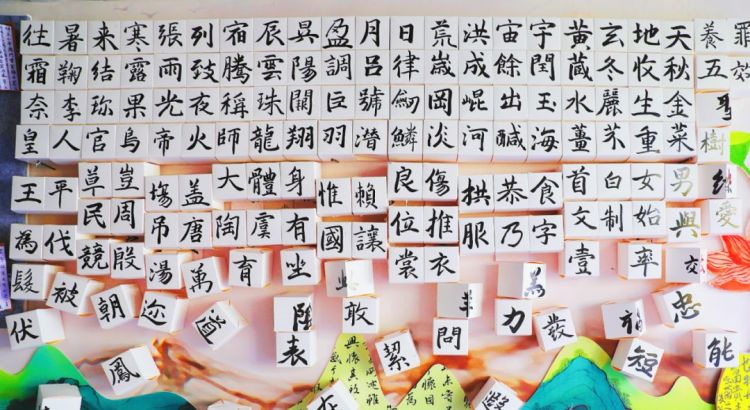 罪養天地玄黃宇宙洪荒日月盈昃辰宿列張寒来暑往
效五秋收冬藏閏餘成歲律呂調陽雲騰致雨露結鞠霜
金生麗水玉出崐岡劒號巨闕珠稱夜光果珎李奈
樹菜重芥薑海鹹河淡鱗潛羽翔龍師火帝鳥官人皇
男女白首食恭拱傷良賴惟身體大盖塲豈草平王
愛與始制文字乃服推位讓國有虞陶唐吊周民
交率壹衣裳坐育萬湯殷競伐為
忠力敢道迩朝被髮
能發問伏
短絜表鳳